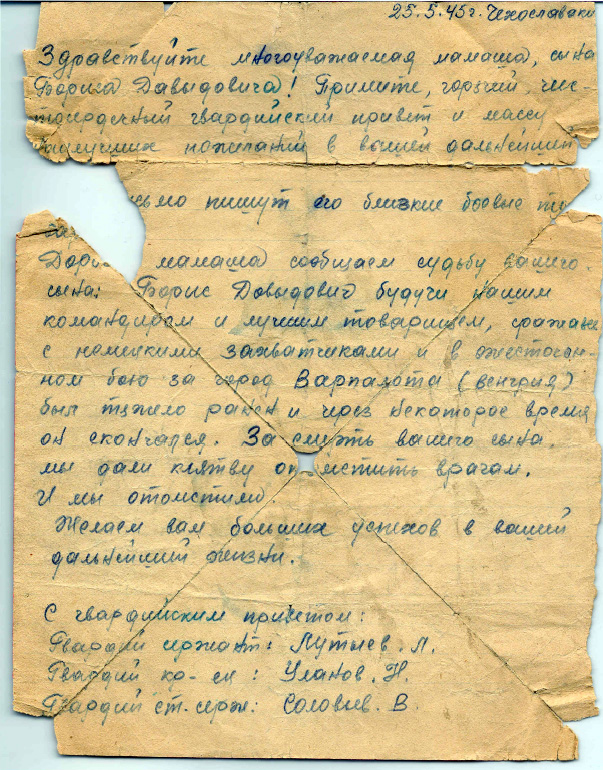 25.5.45г. Чехословаки
Здравствуйте многоуважаемая мамаша, сына
Бориса Давыдовича! Примите, горячий, чис-
тосердечный гвардийский привет и массу
наилучших пожеланий в вашей дальнейшей
письмо пишут его близкие боевые
Дорогая мамаша сообщаем судьбу вашего
сына: Борис Довыдович будучи нашим
командиром и лучшим товарищем, сражаясь
с немецкими захватчиками и в ожесточен-
ном бою за город Варпалота (венгрия)
был тяжело ранен и через некоторое время
он скончался. За смерть вашего сына,
мы дали клятву отомстить врагам.
И мы отомстили.
Желаем вам больших успехов в вашей
дальнейший жизни.
С гвардийским приветом:
Гвардий сержант: Лутыев. Л.
Гвардий ко-ец: Уланов. Н.
Гвардий ст. серж: Соловьев. В.